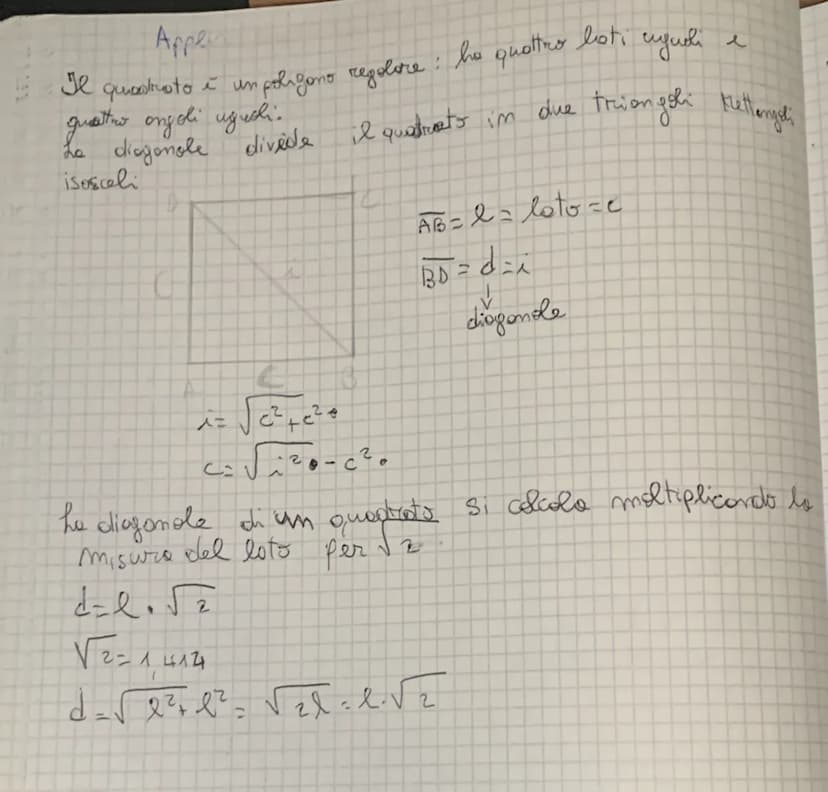 Appl
Il quadrato è un poligono regolare: ha quattro lati uguali e
quattro angoli uguali.
La diagonale divide il quadrato in due triangoli rettangoli
isosceli
D C
C i
A C B
AB = l = lato = c
BD = d = i
↓
diagonale
i = √c² + c²
c = √i² - c²
La diagonale di un quadrato si calcola moltiplicando la
misura del lato per √2.
d = l · √2
√2 = 1,414
d = √l² + l² = √2l = l · √2